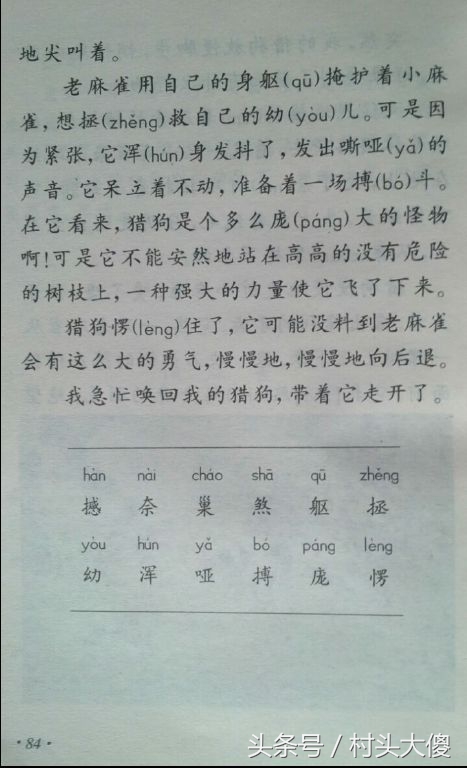 地尖叫着。
老麻雀用自己的身躯(qū)掩护着小麻
雀,想拯(zhěng)救自己的幼(yòu)儿。可是因
为紧张,它浑(hún)身发抖了,发出嘶哑(yǎ)的
声音。它呆立着不动,准备着一场搏(bó)斗。
在它看来,猎狗是个多么庞(páng)大的怪物
啊!可是它不能安然地站在高高的没有危险
的树枝上,一种强大的力量使它飞了下来。
猎狗愣(lèng)住了,它可能没料到老麻雀
会有这么大的勇气,慢慢地,慢慢地向后退。
我急忙唤回我的猎狗,带着它走开了。
hàn nài cháo shā qū zhěng
撼 奈 巢 煞 躯 拯
yòu hún yǎ bó páng lèng
幼 浑 哑 搏 庞 愣
·84·
头条号/村头大傻